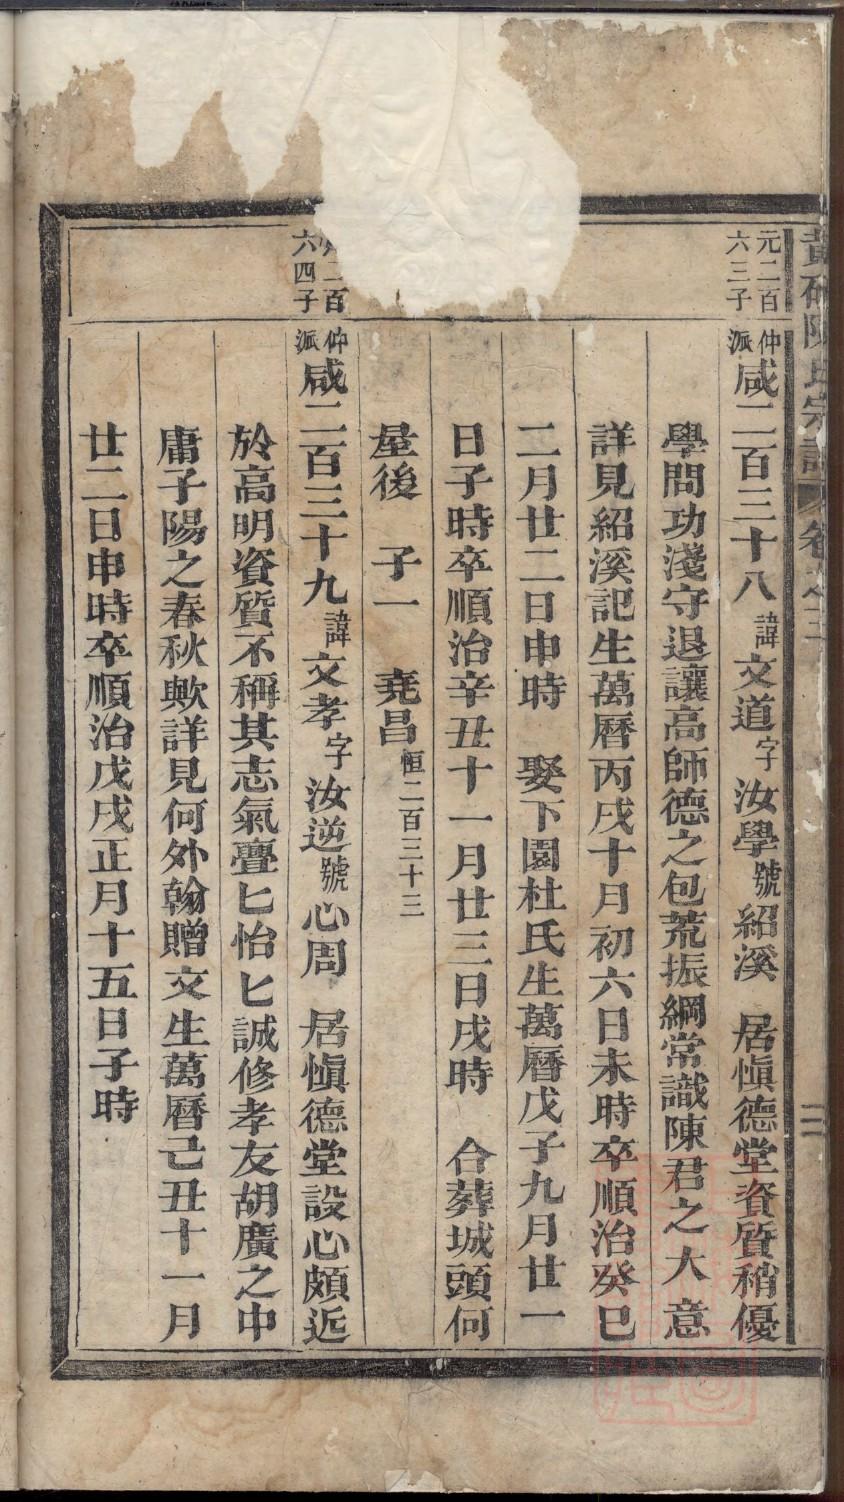 陳氏宗譜 卷之三
二
元二百六三子
仲派咸二百三十八諱文道字汝學號紹溪 居愼德堂資質稍優
學問功淺守退讓高師德之包荒振綱常識陳君之大意
詳見紹溪記生萬曆丙戌十月初六日未時卒順治癸巳
二月廿二日申時 娶下園杜氏生萬曆戊子九月廿一
日子時卒順治辛丑十一月廿三日戌時 合葬城頭何
屋後 子一 堯昌恒二百三十三
二百六四子
仲派咸二百三十九諱文孝字汝逆號心周 居愼德堂設心頗近
於高明資質不稱其志氣亹匕怡匕誠修孝友胡廣之中
庸子陽之春秋歟詳見何外翰贈文生萬曆己丑十一月
廿二日申時卒順治戊戌正月十五日子時